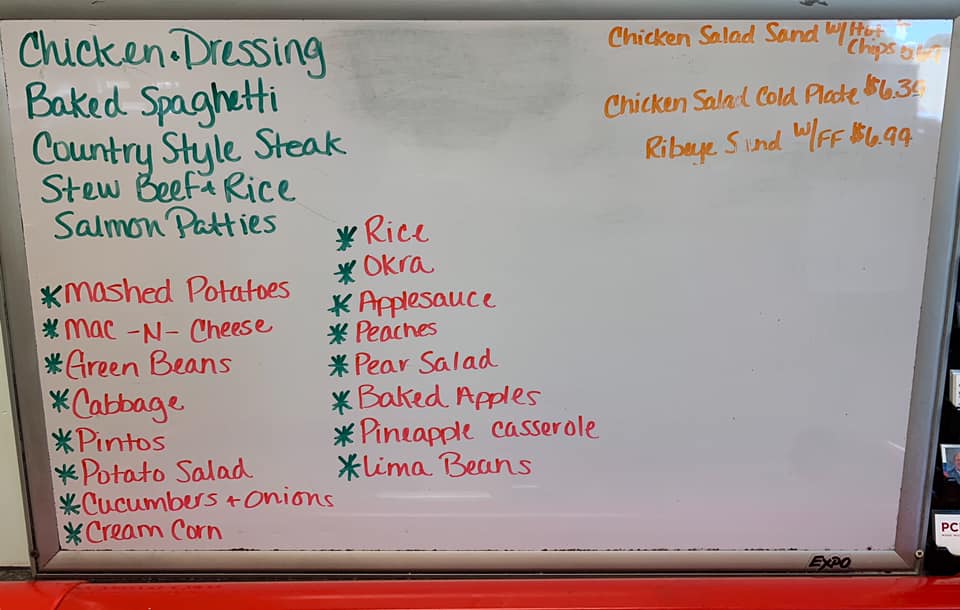 Chicken & Dressing
Baked Spaghetti
Country Style Steak
Stew Beef & Rice
Salmon Patties
*Mashed Potatoes
*Mac -N- Cheese
*Green Beans
*Cabbage
*Pintos
*Potato Salad
*Cucumbers + Onions
*Cream Corn
*Rice
*Okra
*Applesauce
*Peaches
*Pear Salad
*Baked Apples
*Pineapple casserole
*Lima Beans
Chicken Salad Sand w/ Hot
Chips
Chicken Salad Cold Plate $6.39
Ribeye Sand w/FF $6.99
EXPO
PC